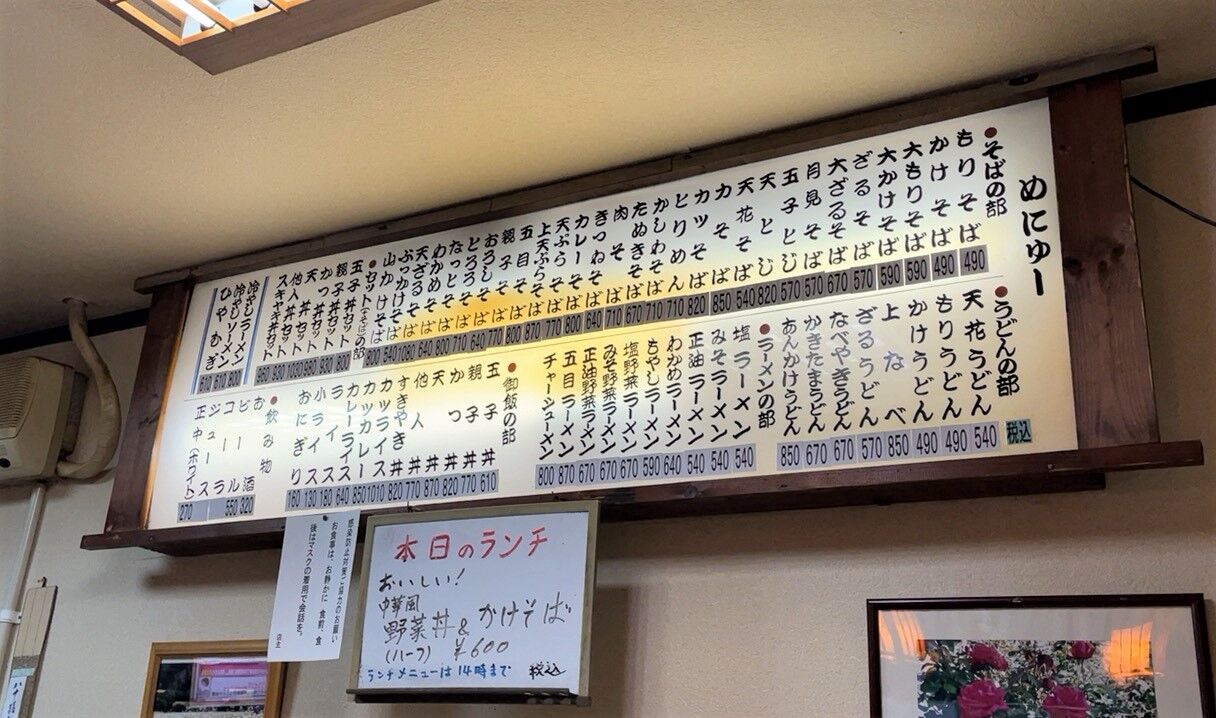 めにゅー
そばの部
もりそば 490
かけそば 490
大もりそば 590
大かけそば 590
ざるそば 570
大ざるそば 670
月見そば 570
玉子とじ 570
天とじ 820
天花そば 540
力そば 850
カツそば 820
とりめん 710
かしわそば 710
たぬきそば 670
肉そば 710
きつねそば 640
カレーそば 800
天ぷらそば 770
上天ぷらそば 870
五目そば 800
親子そば 770
おろしそば 640
とろろそば 710
なっとそば 800
わかめそば 640
天ざるそば 1080
ぶっかけそば 540
山かけそば 800
セット(そば)の部
玉子丼セット
親子丼セット
かつ丼セット
天丼セット
他人丼セット
スキヤキ丼セット
冷やしラーメン 800
冷やしソーメン 610
ひやむぎ 610
うどんの部
税込
天花うどん 540
もりうどん 490
かけうどん 490
上なべ 850
ざるうどん 570
なべやきうどん 670
かきたまうどん 670
あんかけうどん 850
ラーメンの部
塩ラーメン 540
みそラーメン 540
正油ラーメン 540
わかめラーメン 640
もやしラーメン 590
塩野菜ラーメン 670
みそ野菜ラーメン 670
正油野菜ラーメン 670
五目ラーメン 870
チャーシューメン 800
御飯の部
玉子丼 610
親子丼 770
かつ丼 820
天丼 870
他人丼 770
すきやき丼 820
カツカレーライス 1010
カツライス 850
カレーライス 640
ライス 180
小ライス 130
おにぎり 160
お飲み物
お酒 320
ビール 550
コーラ
ジュース
正中(ホワイト) 270
感染防止対策ご協力のお願い
お食事は、お静かに 食前、食
後はマスクの着用で会話を。
店主
本日のランチ
おいしい!
中華風
野菜丼&かけそば
(ハーフ) ¥600
ランチメニューは14時まで 税込